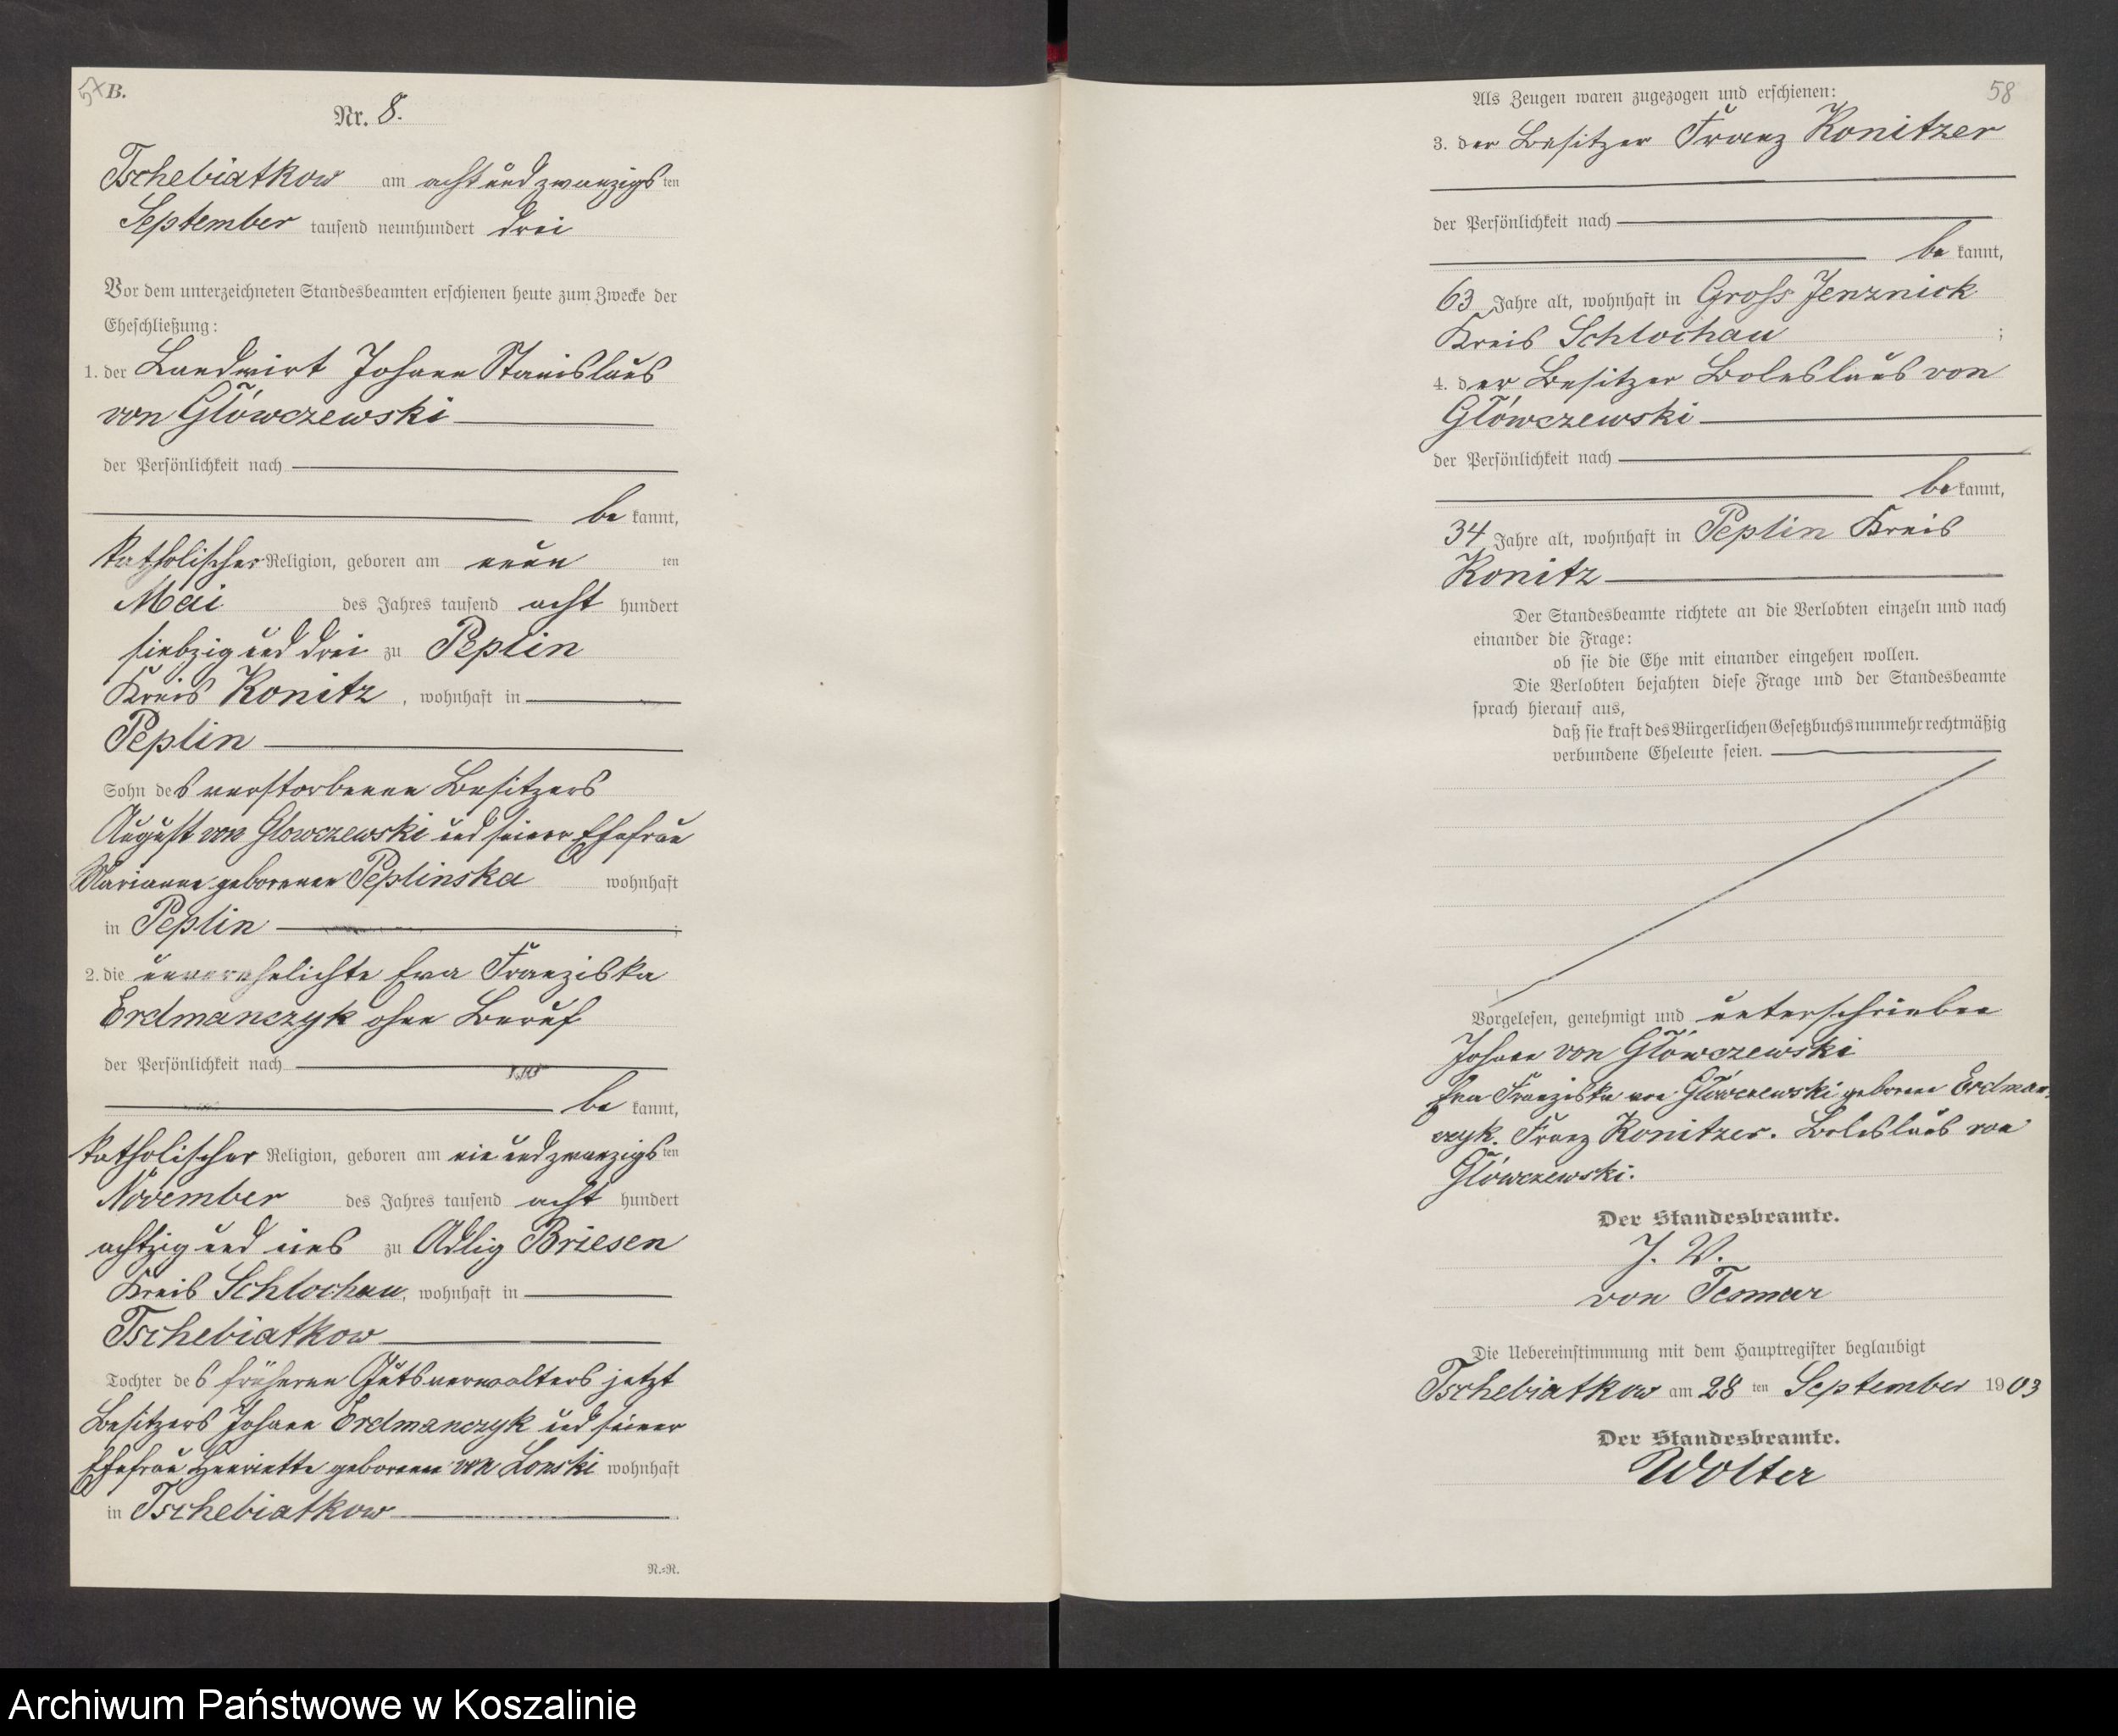 57
B.
Nr. 8.
Tschebiatkow am achtundzwanzigsten
September tausend neunhundert drei
Vor dem unterzeichneten Standesbeamten erschienen heute zum Zwecke der
Eheschließung:
1. der Landwirt Johann Stanislaus
von Główczewski
der Persönlichkeit nach
be kannt,
katholischer Religion, geboren am neun ten
Mai des Jahres tausend acht hundert
siebzig und drei zu Peplin
Kreis Konitz, wohnhaft in
Peplin
Sohn des verstorbenen Besitzers
August von Glowczewski und seiner Ehefrau
Marianne geborenen Peplinska wohnhaft
in Peplin ;
2. die unverehelichte Eva Franziska
Erdmanczyk ohne Beruf
der Persönlichkeit nach
be kannt,
katholischer Religion, geboren am einundzwanzigsten
November des Jahres tausend acht hundert
achtzig und eins zu Adlig Briesen
Kreis Schlochau, wohnhaft in
Tschebiatkow
Tochter des früheren Gutsverwalters jetzt
Besitzers Johann Erdmanczyk und seiner
Ehefrau Henriette geborenen von Lonski wohnhaft
in Tschebiatkow
R.=R.
58
Als Zeugen waren zugezogen und erschienen:
3. der Besitzer Franz Konitzer
der Persönlichkeit nach
be kannt,
63 Jahre alt, wohnhaft in Gross Jenznick
Kreis Schlochau ;
4. der Besitzer Boleslaus von
Główczewski
der Persönlichkeit nach
be kannt,
34 Jahre alt, wohnhaft in Peplin Kreis
Konitz
Der Standesbeamte richtete an die Verlobten einzeln und nach
einander die Frage:
ob sie die Ehe mit einander eingehen wollen.
Die Verlobten bejahten diese Frage und der Standesbeamte
sprach hierauf aus,
daß sie kraft des Bürgerlichen Gesetzbuchs nunmehr rechtmäßig
verbundene Eheleute seien.
Vorgelesen, genehmigt und unterschrieben
Johann von Główczewski
Eva Franziska von Główczewski geborene Erdman-
czyk. Franz Konitzer. Boleslaus von
Główczewski.
Der Standesbeamte.
J. V.
von Tesmar
Die Uebereinstimmung mit dem Hauptregister beglaubigt
Tschebiatkow am 28 ten September 1903
Der Standesbeamte.
Wolter
Archiwum Państwowe w Koszalinie